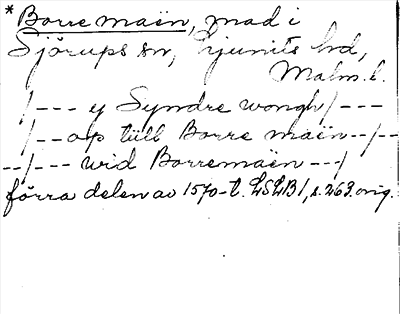 * Borre maën, mad i
Sjörups sn, Ljunits hd,
Malm. l.
/--- y Syndre wongh/---
/--op till Borre maën--/--
--/--- wid Borremaën ---/
förra delen av 1570-t. LSLB1, s. 263. orig.